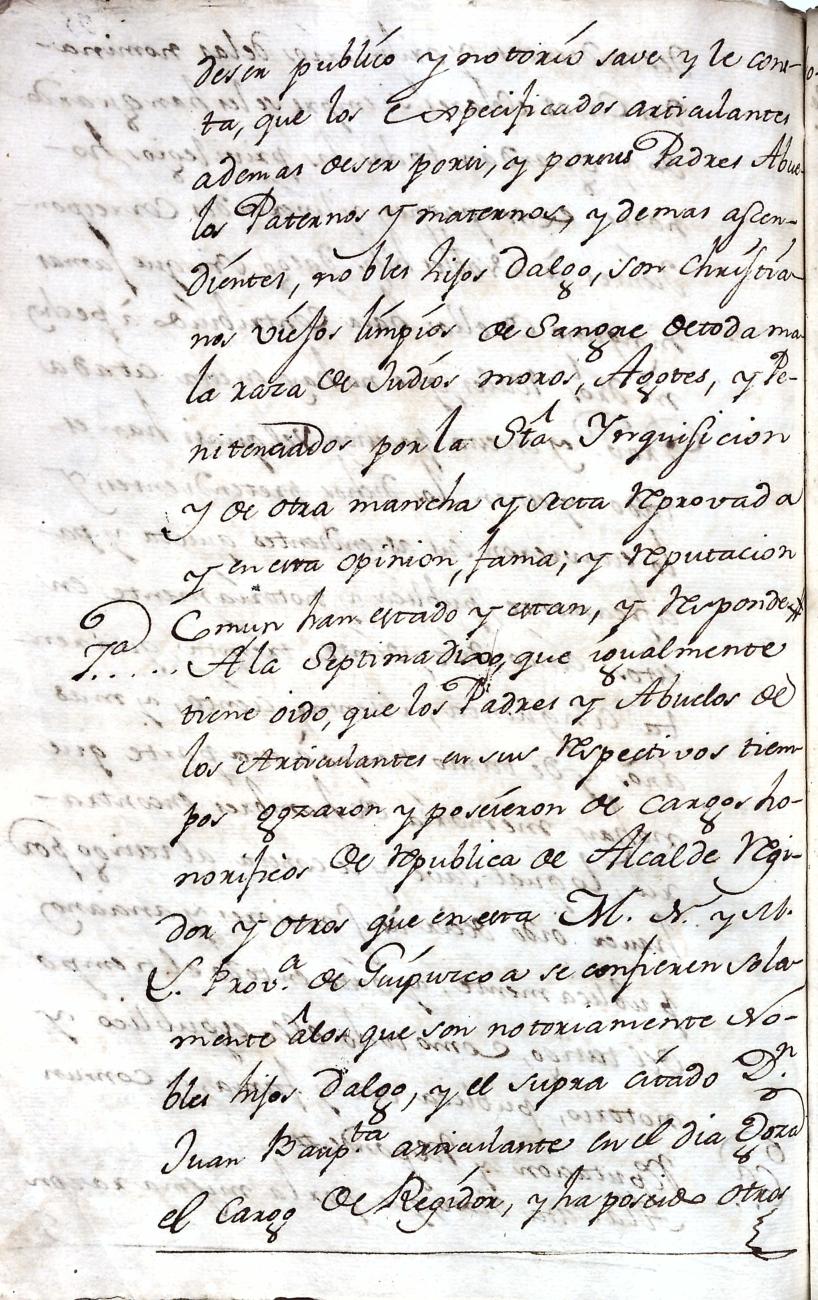 deser publico y notorio save y le cons-
ta, que los Expecificados articulantes
ademas deser porsi, y porsus Padres Abue-
los Paternos y maternos, y demas ascen-
dientes, nobles hijos dalgo, son christia-
nos viejos limpios de Sangre detoda ma-
la raza de Judios moros, Agotes, y Pe-
nitenciados por la Sta Ynquisicion
y de otra mancha y secta Reprovada
y en esta opinion, fama, y Reputacion
Comun han estado y estan, y Responde
7ª..... A la Septima dixo, que igualmente
tiene oido, que los Padres y Abuelos de
los Articulantes en sus Respectivos tiem-
pos gozaron y poseieron de cargos ho-
norificos de Republica de Alcalde Regi-
dor y otros que en esta M. N. y M.
L. Prov.ª de Guipuzcoa se confieren sola-
mente âlos que son notoriamente No-
bles hijos dalgo, y el supra citado Dn
Juan Baup.ta articulante en el dia Goza
el Cargo de Regidor, y ha poseido otros